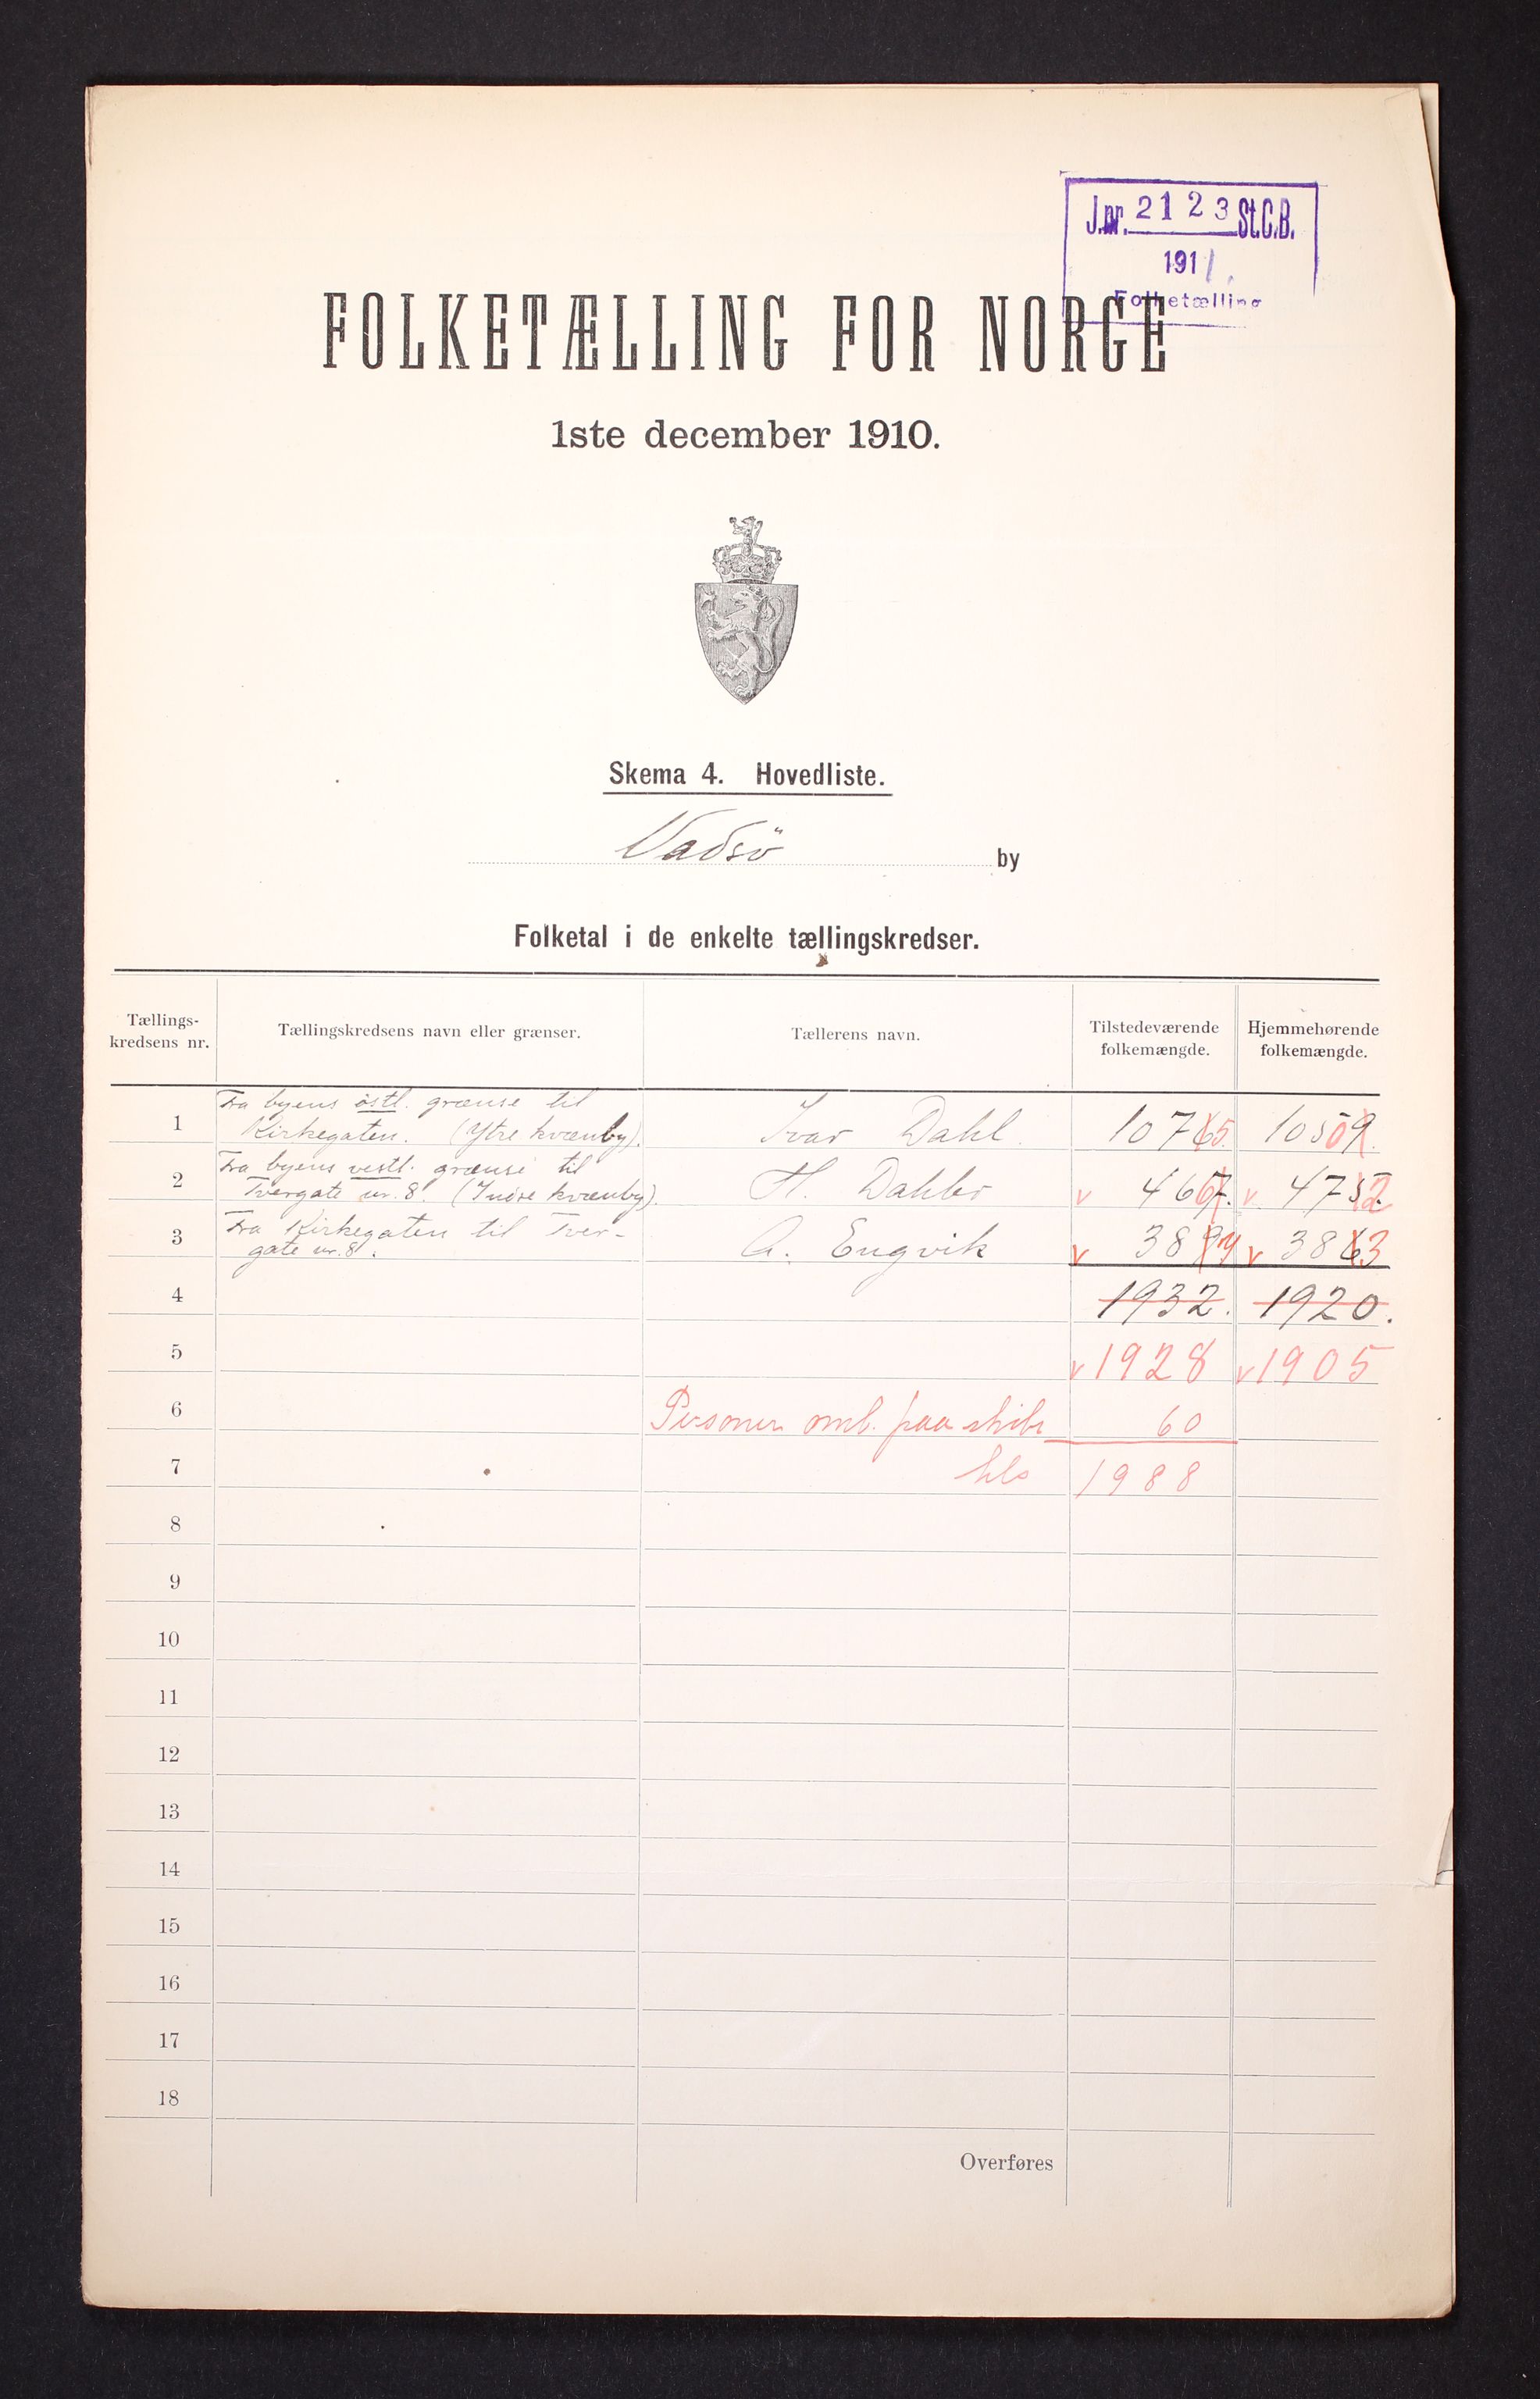 J.nr. 2123 St.C.B.
1911.
Folketælling
FOLKETÆLLING FOR NORGE
1ste december 1910.
Skema 4. Hovedliste.
Vadsö by
Folketal i de enkelte tællingskredser.
Tællings-
kredsens nr.
Tællingskredsens navn eller grænser.
Tællerens navn.
Tilstedeværende
folkemængde.
Hjemmehørende
folkemængde.
Fra byens östl. grænse til
1 Kirkegaten. (Ytre kvænby). Ivar Dahl. 1076 5. 1059 0.
Fra byens vestl. grænse til
2 Tvergate nr. 8. (Indre kvænby). H. Dahler v 467. 6 v 475. 2
3 Fra Kirkegaten til Tver-
gate nr. 8. A. Engvik v 389 7 v 386 3
4 1932. 1920.
5 v 1928 v 1905
6 Personer omb. paa skibe 60
7 1988
8
9
10
11
12
13
14
15
16
17
18
Overføres